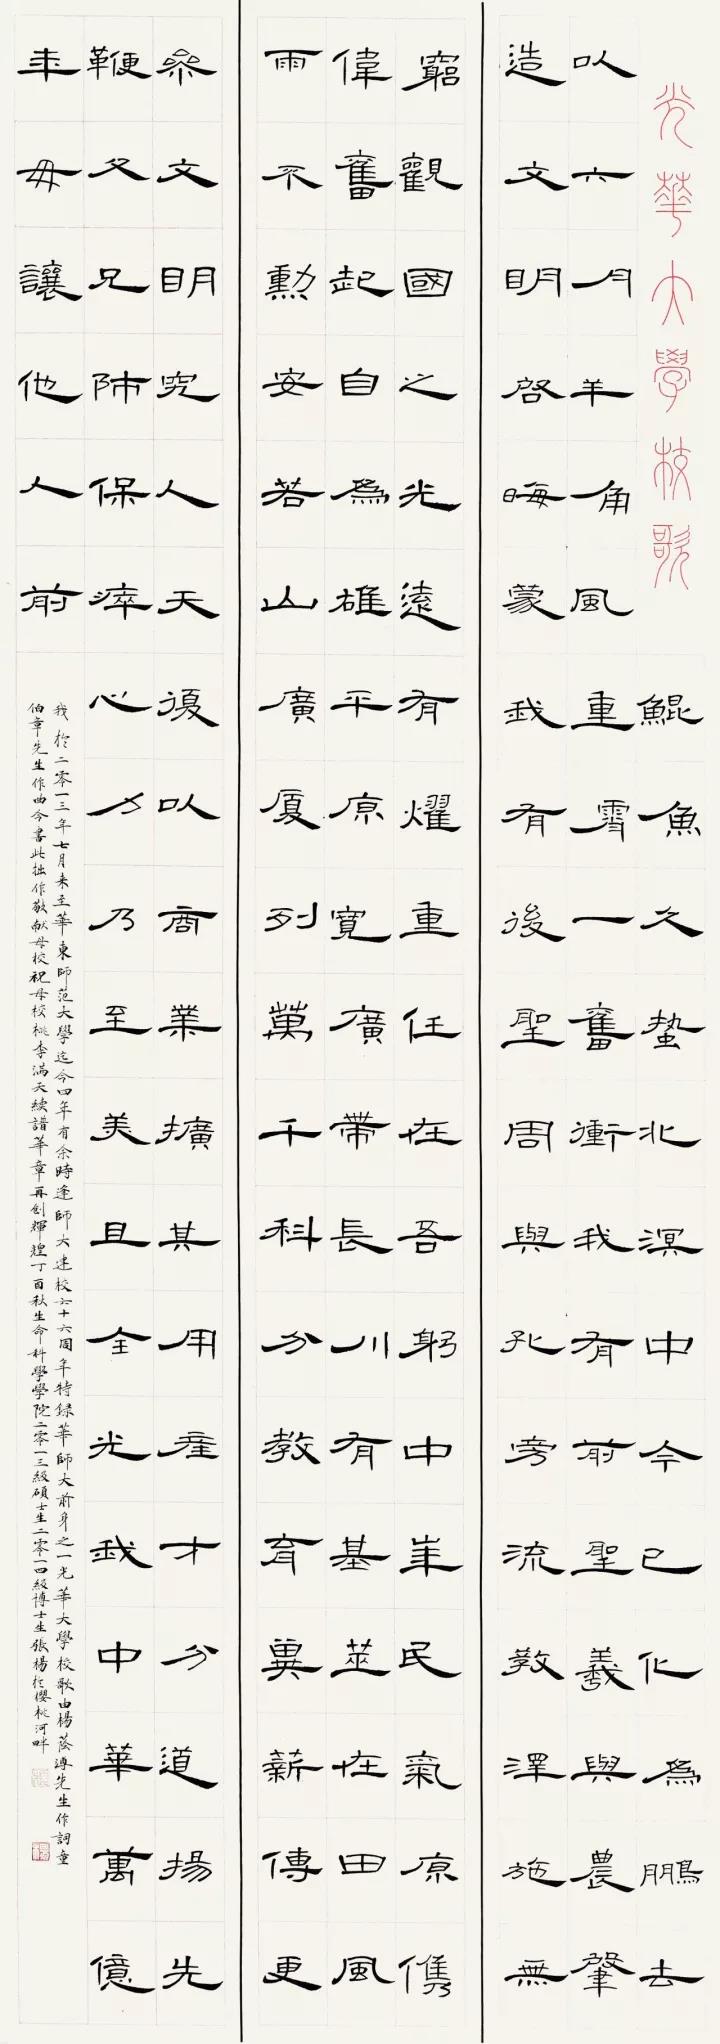 光華大學校歌
鯤魚久蟄北溟中今已化為鵬去
以六月羊角風重霄一奮衝我有前聖羲與農肇
造文明啓晦蒙我有後聖周與孔旁流教澤施無
窮觀國之光遠有耀重任在吾躬中民氣原儁
偉奮起自為雄平原寬廣帶長川有基在田風
雨不勳安若山廣廈列萬千科分教育冀薪傳更
參文明究人天復以商業擴其用產才分道揚先
鞭父兄師保瘁心力乃至美且全光我中華萬億
年毋讓他人前
我於二零一三年七月來至華東師范大學迄今四年有余時逢師大建校六十六周年特録華師大前身之一光華大學校歌由楊蔭溥先生作詞童
伯章先生作曲今書此拙作敬献母校祝母校桃李滿天續譜華章再創輝煌丁酉秋生命科學學院二零一三級碩士生二零一四級博士生張楊於櫻桃河畔